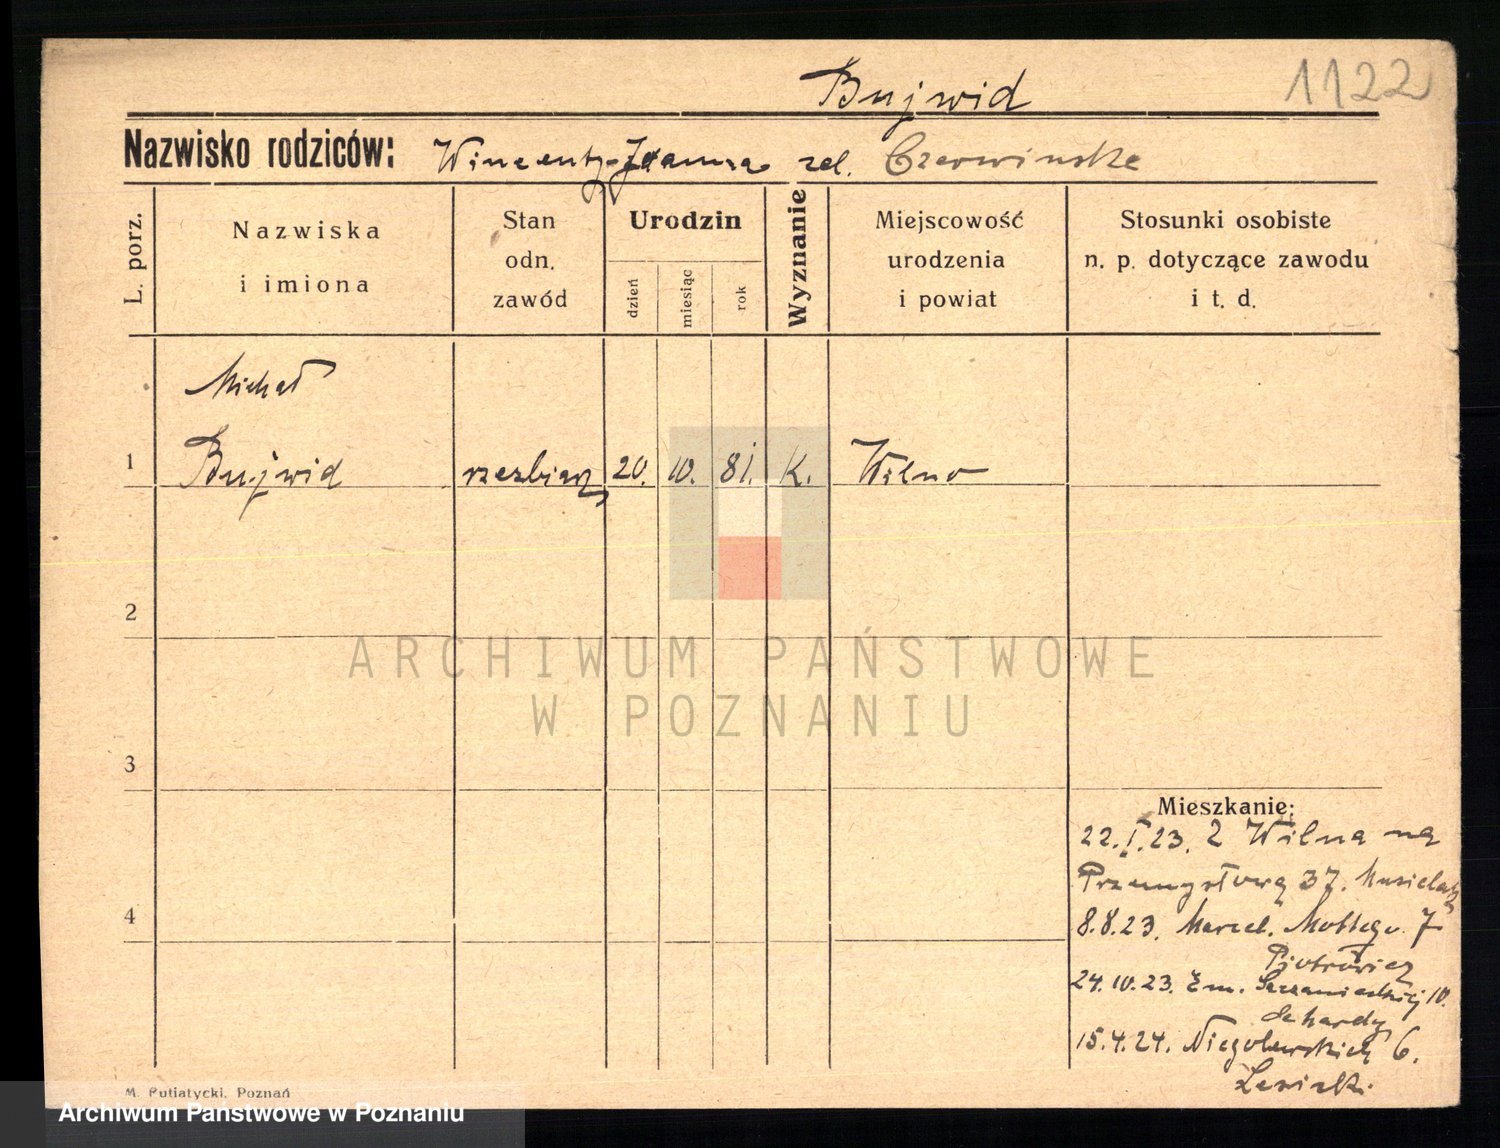 Bujwid
1122
Nazwisko rodziców: Wincenty - Joanna zd. Czerwińska
L. porz.
Nazwiska
i imiona
Stan
odn.
zawód
Urodzin
dzień
miesiąc
rok
Wyznanie
Miejscowość
urodzenia
i powiat
Stosunki osobiste
n. p. dotyczące zawodu
i t. d.
Michał
1 Bujwid rzezbiarz 20. 10. 81. K. Wilno
2
3
4
Mieszkanie:
22.I.23. z Wilna na
Przemysłową 37. Musielak
8.8.23. Marcel. Mottego 7
Piotrowicz
24.10.23. Em. Sczanieckiej 10.
15.4.24. Niegolewskich 6.
M. Putiatycki, Poznań
ARCHIWUM PAŃSTWOWE
W POZNANIU
Archiwum Państwowe w Poznaniu